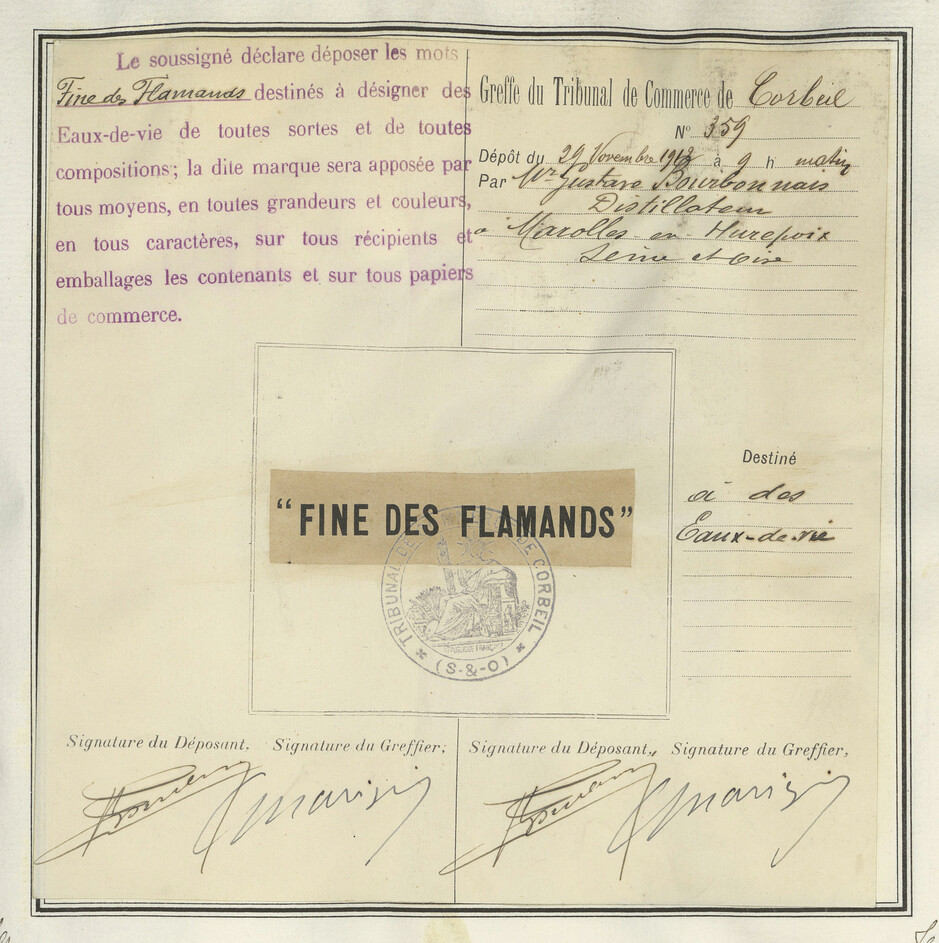 Le soussigné déclare déposer les mots
Fine des Flamands destinés à désigner des
Eaux-de-vie de toutes sortes et de toutes
compositions; la dite marque sera apposée par
tous moyens, en toutes grandeurs et couleurs,
en tous caractères, sur tous récipients et
emballages les contenants et sur tous papiers
de commerce.
Greffe du Tribunal de Commerce de Corbeil
N° 359
Dépôt du 29 Novembre à 9 h matin
Par Mr Gustave Bourbonnais
Distillateur
à Marolles en Hurepoix
Seine et Oise
"FINE DES FLAMANDS"
TRIBUNAL DE DE CORBEIL
(S-&-O)
Destiné
à des
Eaux-de-vie
Signature du Déposant, Signature du Greffier, Signature du Déposant, Signature du Greffier,